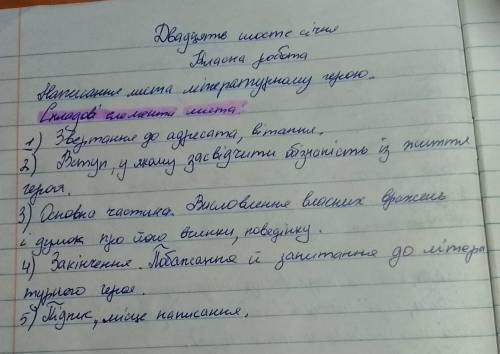 Двадцять шосте січня
Класна робота
Написання листа літературному герою.
Складові елементи листа:
1) Звертання до адресата, вітання.
2) Вступ, у якому засвідчити обізнаність із життя
героя.
3) Основна частина. Висловлення власних вражень
і думок про його вчинки, поведінку.
4) Закінчення. Побажання й запитання до літера
турного героя.
5) Підпис, місце написання.